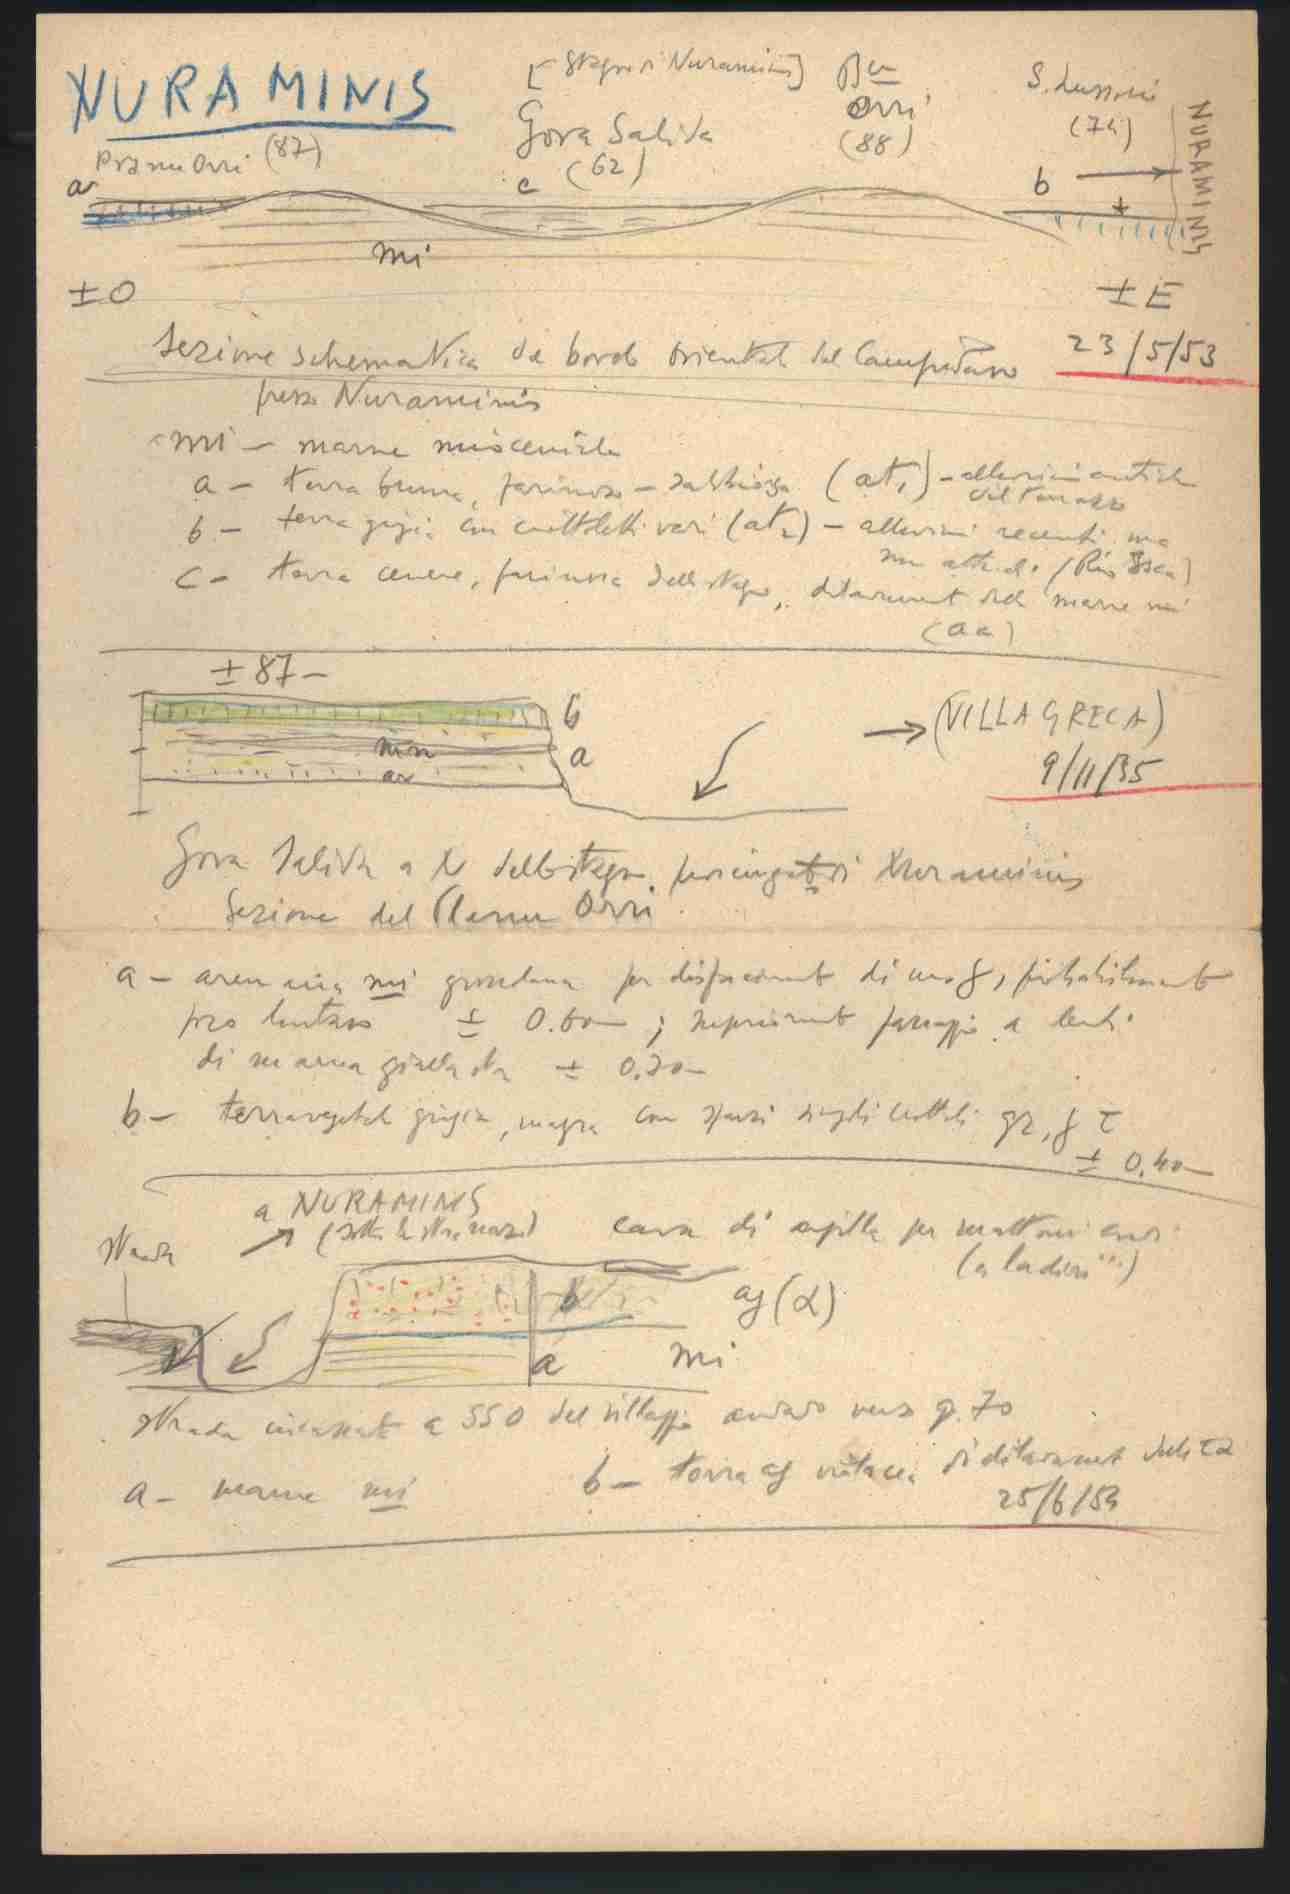 NURAMINIS
[Stagno di Nuraminis]
Pranu Orri (87)
Gora Salida
(62)
Orri
(88)
S. Lussorio
(74)
NURAMINIS
a
c
b
mi
± O
± E
Sezione schematica del bordo orientale del Campidano
23/5/53
presso Nuraminis
mi - marne mioceniche
a - terra bruna, farinoso - sabbiosa (at1) - alluvioni antiche
del terrazzo
b - terra grigia con ciottoletti vari (at2) - alluvioni recenti ma
non attuali (Rio
c - terra cenere, farinosa dello stagno, dilavament delle marne mi
(aa)
± 87 -
b
mrn
a
ar
→ (VILLAGRECA)
9/11/35
Gora Salida a N dello stagno prosciugato di Nuraminis
Sezione del Planu Orri
a - arenaria mi grossolana per disfaciment di
± 0.60 ; superiorment passaggio a lenti
di marna giallastra ± 0.20
b - terra vegetale grigia, magra con sparsi ciottoli qz,
± 0.40
a NURAMINIS
strada
(sotto la strada
cava di argilla per mattoni crudi
(a ladiri)
b
ag (α)
a
mi
strada incassata a SSO del villaggio andando verso q. 70
a - marne mi
b - terra ag di dilavament delle
25/6/54